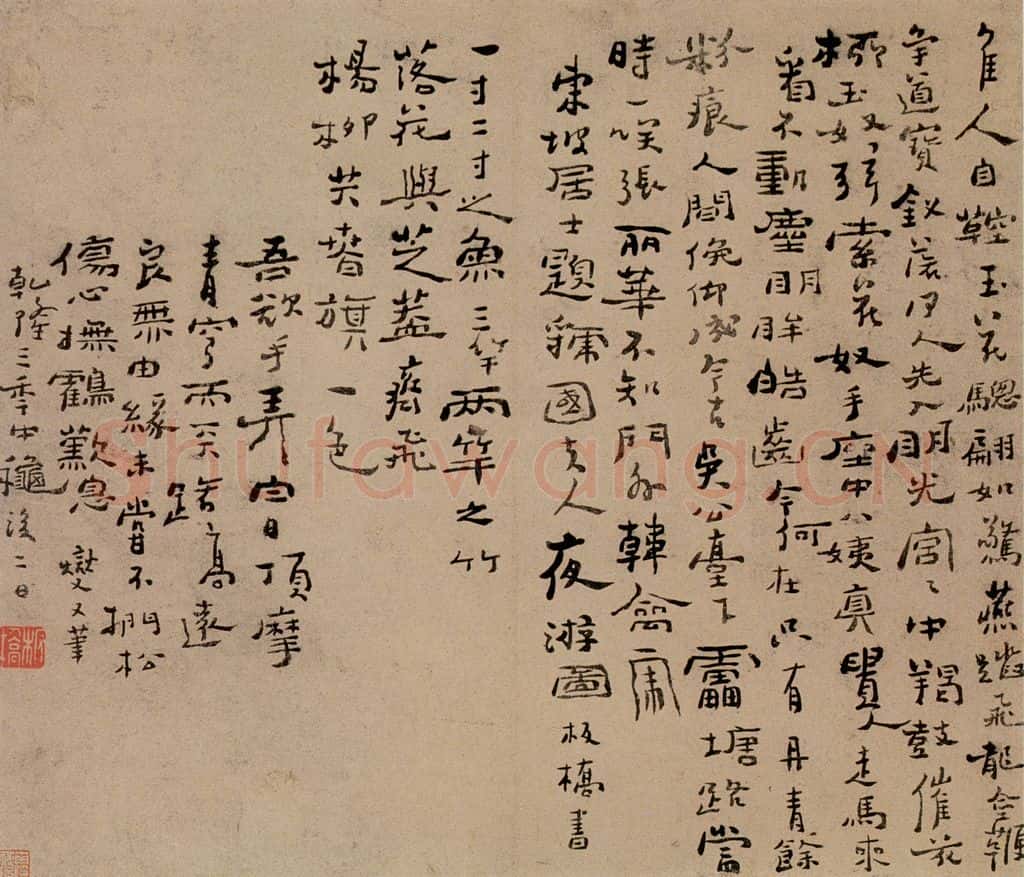 隹人自鞚玉花驄翩如驚燕蹴飛龍金鞭
爭道寶釵落何人先入明光宮々中羯鼓催花
柳玉奴弦索花奴手座中八姨真貴人走馬來
看不動塵明眸皓齒今何在只有丹青餘
粉痕人間俛仰成今古吳公臺下靁塘路當
時一咲張丽華不知門外韓禽虎
東坡居士題虢國夫人夜游圖 板橋書
一寸二寸之魚三竿兩竿之竹
落花與芝蓋齊飛
楊柳共春旗一色
吾欲手弄白日頂摩
青穹而天路高遠
良無由緣未嘗不捫松
傷心撫鶴歎息 燮又筆
乾隆三年中穐後二日
Shufawang.cn